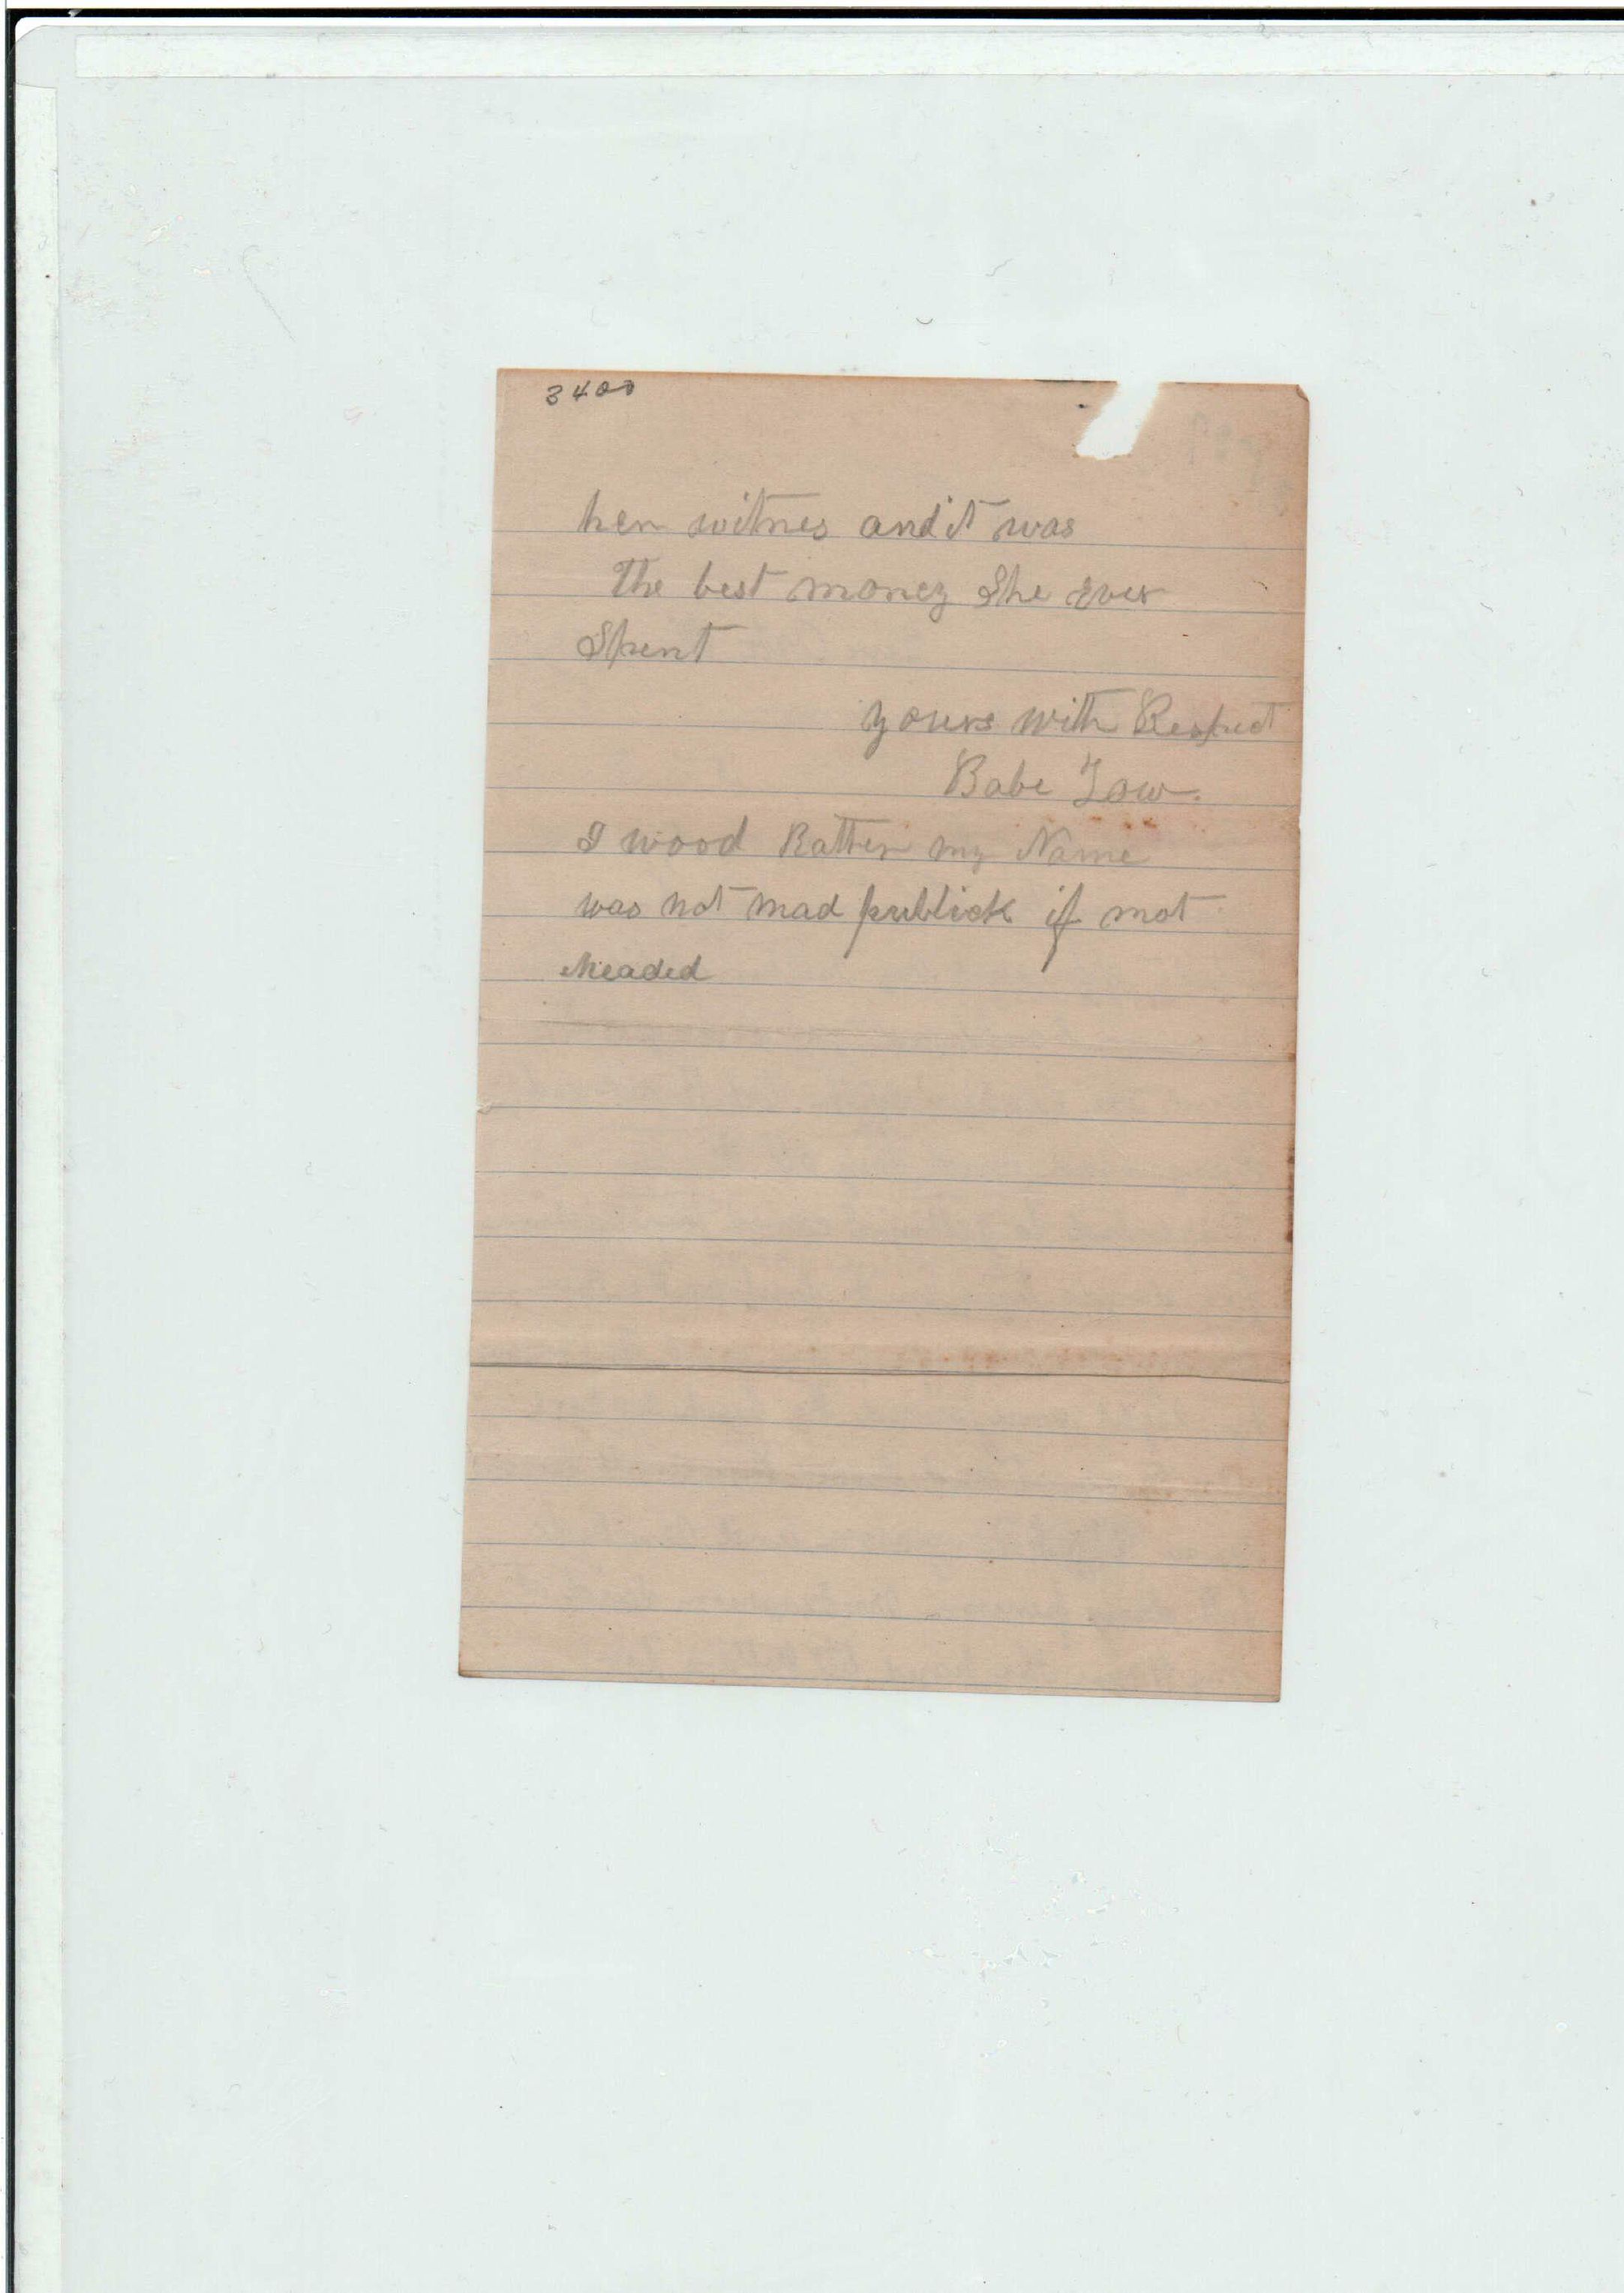 3400
her witnes and it was
The best money She Ever
Spent
yours with Respect
Babe Tow.
I wood Rather my Name
was not mad publick if not
Neaded